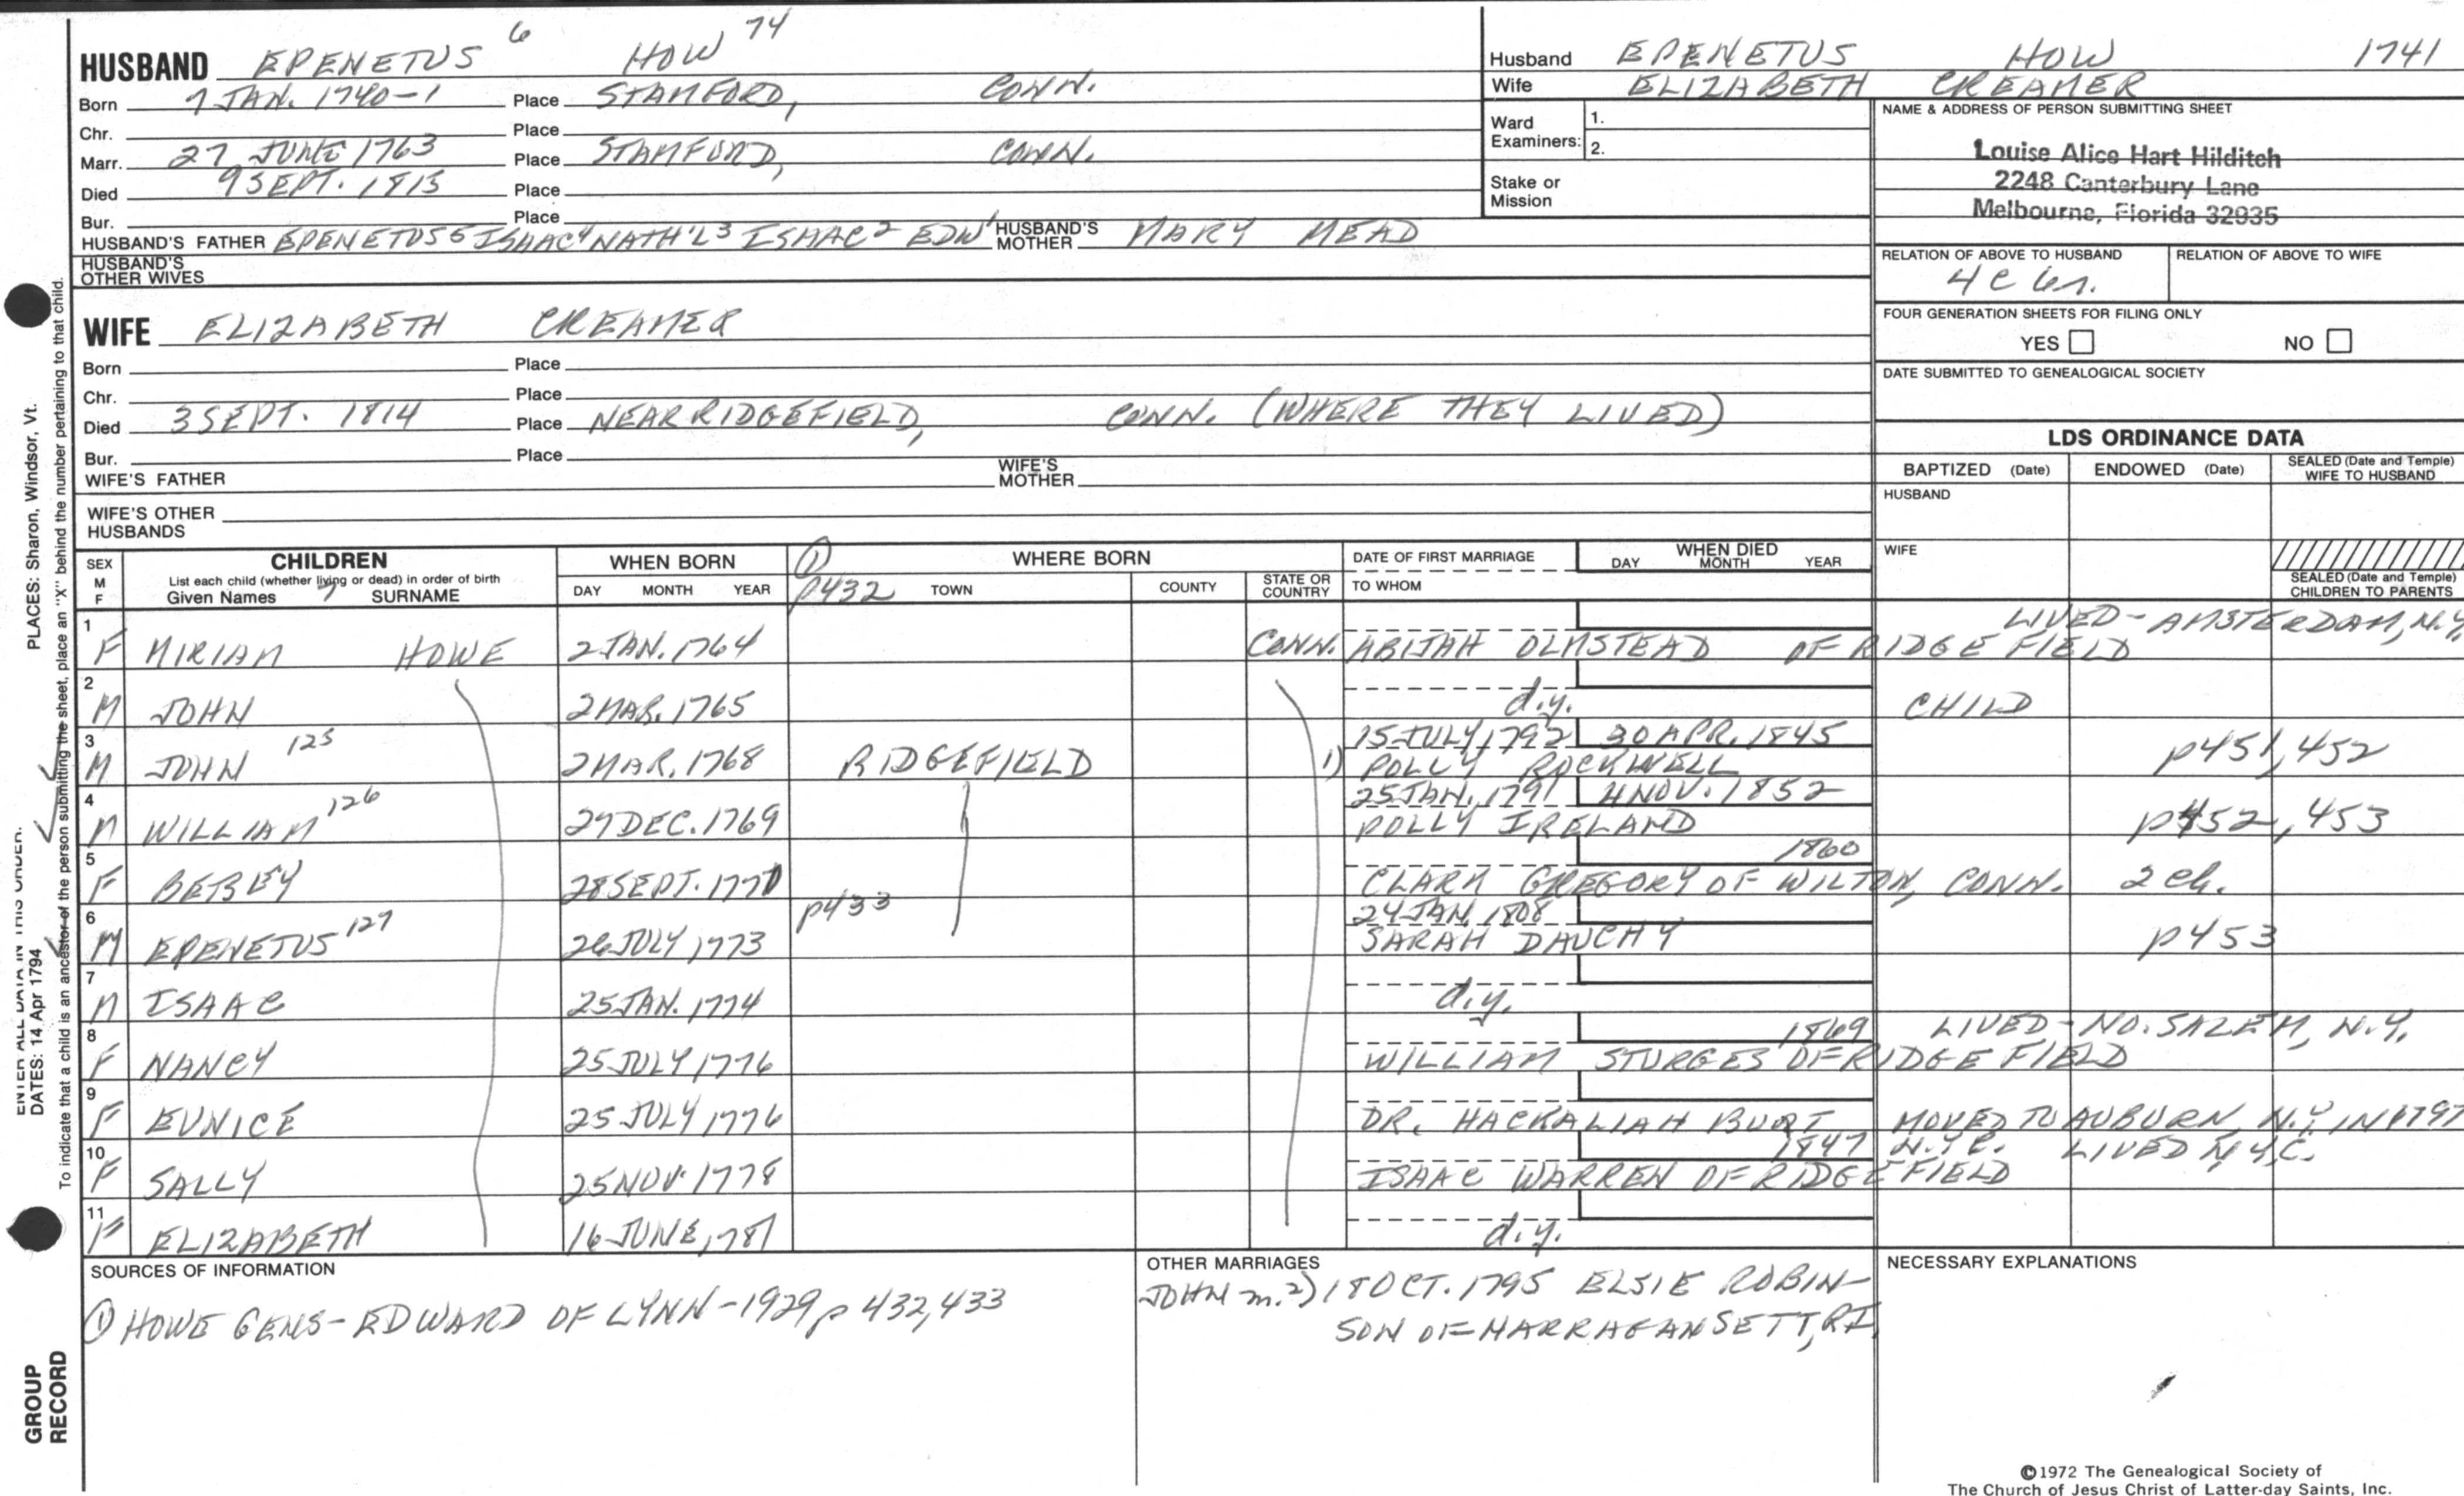 HUSBAND EPENETUS 6 HOW 74
Born 7 JAN. 1740-1 Place STAMFORD, CONN.
Chr. Place
Marr. 27 JUNE 1763 Place STAMFORD, CONN.
Died 9 SEPT. 1813 Place
Bur. Place
HUSBAND'S FATHER EPENETUS5 ISAAC4 NATH'L3 ISAAC2 EDW1 HUSBAND'S MOTHER MARY MEAD
HUSBAND'S OTHER WIVES
Husband EPENETUS HOW 1741
Wife ELIZABETH CREAMER
Ward Examiners: 1.
2.
Stake or Mission
NAME & ADDRESS OF PERSON SUBMITTING SHEET
Louise Alice Hart Hilditch
2248 Canterbury Lane
Melbourne, Florida 32935
RELATION OF ABOVE TO HUSBAND RELATION OF ABOVE TO WIFE
4C 6r.
FOUR GENERATION SHEETS FOR FILING ONLY
YES NO
DATE SUBMITTED TO GENEALOGICAL SOCIETY
WIFE ELIZABETH CREAMER
Born Place
Chr. Place
Died 3 SEPT. 1814 Place NEAR RIDGEFIELD, CONN. (WHERE THEY LIVED)
Bur. Place
WIFE'S FATHER WIFE'S MOTHER
WIFE'S OTHER HUSBANDS
LDS ORDINANCE DATA
BAPTIZED (Date) ENDOWED (Date) SEALED (Date and Temple) WIFE TO HUSBAND
HUSBAND
WIFE
SEALED (Date and Temple) CHILDREN TO PARENTS
SEX M F CHILDREN WHEN BORN ① WHERE BORN DATE OF FIRST MARRIAGE WHEN DIED
List each child (whether living or dead) in order of birth DAY MONTH YEAR
Given Names 7 SURNAME DAY MONTH YEAR p432 TOWN COUNTY STATE OR COUNTRY TO WHOM
LIVED - AMSTERDAM, N.Y.
1 F MIRIAM HOWE 2 JAN. 1764 CONN. ABIJAH OLMSTEAD OF RIDGEFIELD
2 M JOHN 2 MAR. 1765 d.y. CHILD
15 JULY 1792 30 APR. 1845
3 M JOHN 125 2 MAR. 1768 RIDGEFIELD 1) POLLY ROCKWELL p451,452
25 JAN. 1791 4 NOV. 1852
4 M WILLIAM 126 27 DEC. 1769 POLLY IRELAND p452,453
1860
5 F BETSEY 28 SEPT. 1771 CLARK GREGORY OF WILTON, CONN. 2 ch.
24 JAN. 1808
6 M EPENETUS 127 26 JULY 1773 p433 SARAH DAUCHY p453
7 M ISAAC 25 JAN. 1774 d.y.
1869 LIVED - NO. SALEM, N.Y.
8 F NANCY 25 JULY 1776 WILLIAM STURGES OF RIDGEFIELD
9 F EUNICE 25 JULY 1776 DR. HACKALIAH BURT MOVED TO AUBURN, N.Y. IN 1797
1847 N.Y.C. LIVED N.Y.C.
10 F SALLY 25 NOV. 1778 ISAAC WARREN OF RIDGEFIELD
11 F ELIZABETH 16 JUNE, 1781 d.y.
SOURCES OF INFORMATION
① HOWE GENS - EDWARD OF LYNN - 1929 p 432,433
OTHER MARRIAGES
JOHN m. 2) 18 OCT. 1795 ELSIE ROBIN-
SON OF NARRAGANSETT, RI
NECESSARY EXPLANATIONS
©1972 The Genealogical Society of
The Church of Jesus Christ of Latter-day Saints, Inc.
PLACES: Sharon, Windsor, Vt.
ENTER ALL DATA IN THIS ORDER:
DATES: 14 Apr 1794
To indicate that a child is an ancestor of the person submitting the sheet, place an "X" behind the number pertaining to that child.
GROUP
RECORD